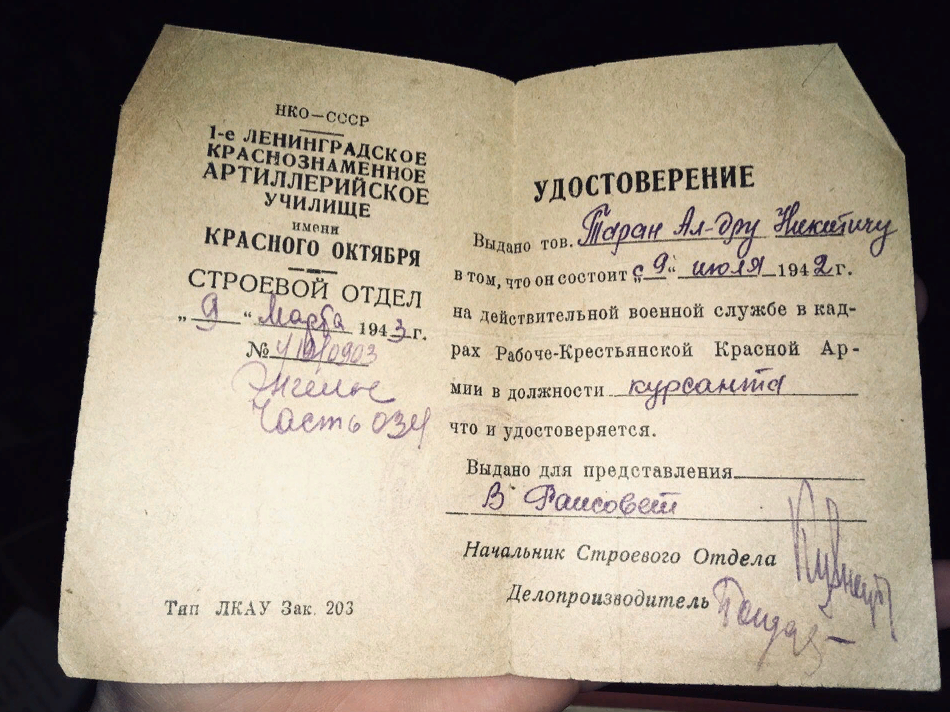 НКО—СССР
1-е ЛЕНИНГРАДСКОЕ
КРАСНОЗНАМЕННОЕ
АРТИЛЛЕРИЙСКОЕ
УЧИЛИЩЕ
имени
КРАСНОГО ОКТЯБРЯ
СТРОЕВОЙ ОТДЕЛ
„ 9 “ Марта 1943 г.
№
Энгельс
Часть 034
Тип ЛКАУ Зак. 203
УДОСТОВЕРЕНИЕ
Выдано тов. Таран Ал-дру Никитичу
в том, что он состоит с „9“ июля 1942 г.
на действительной военной службе в кад-
рах Рабоче-Крестьянской Красной Ар-
мии в должности курсанта
что и удостоверяется.
Выдано для представления
В Райсовет
Начальник Строевого Отдела
Делопроизводитель